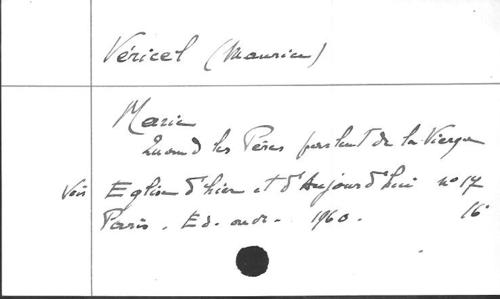 Véricel (Maurice)
Marie
Quand les Pères parlent de la Vierge
Voir Eglise d'hier et d'Aujourd'hui n° 17
Paris. Ed. ouvr. 1960. 16°